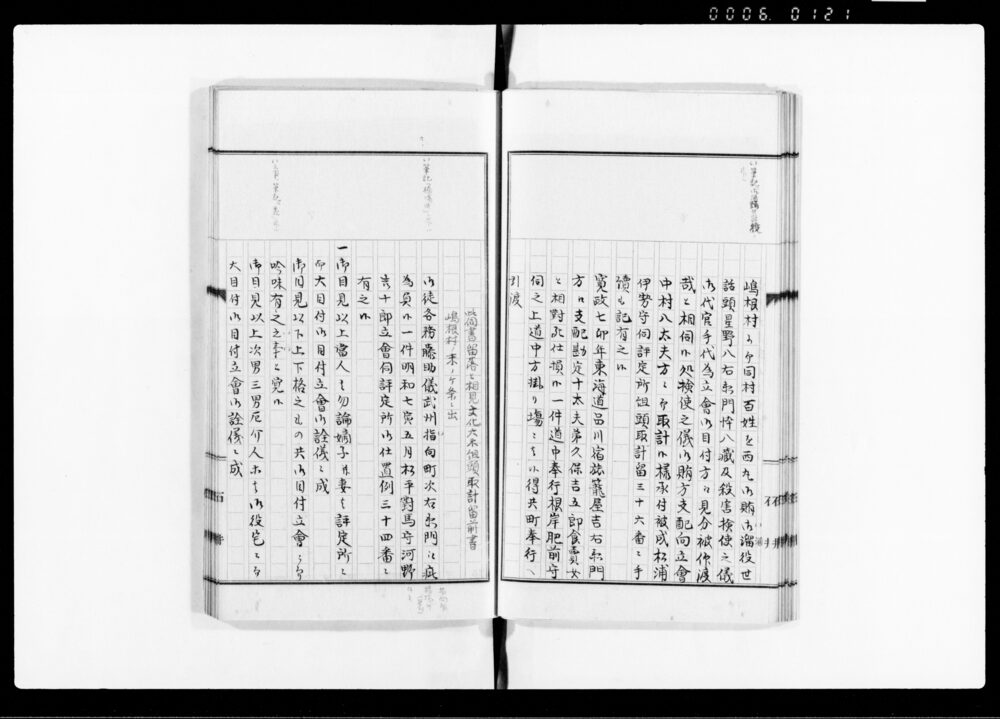 0006.0121
嶋根村ゟ同村百姓を西丸御賄御溜役世
話頭星野八右衛門忰八藏及殺害検使之儀
御代官手代為立會御目付方ゟ見分被仰渡
哉と相伺候処検使之儀御賄方支配向立會
中村八太夫方ニ而取計候様承付被成松浦
伊勢守伺評定所組頭取計留三十六番ニ手
續も記有之候
寛政七卯年東海道品川宿旅籠屋吉右衛門
方ニ支配勘定十太夫弟久保吉五郎食賣女
と相對死仕損候一件道中奉行根岸肥前守
伺之上道中方掛り場ニ者候得共町奉行へ
引渡
此伺書留落と相見文化六未組頭取計留前書
嶋根村ノ末ノケ条ニ出
御徒各務藤助儀武州指向町次右衛門ニ疵
為負候一件明和七寅五月松平對馬守河野
吉十郎立會伺評定所御仕置例三十四番ニ
有之候
一御目見以上當人者勿論嫡子并妻者評定所ニ
而大目付御目付立會御詮儀ニ成
御目見以下上下格之もの共御目付立會ニ而
吟味有之之事と覚候
御目見以上次男三男厄介人等者御役宅ニ而
大目付御目付立會御詮儀ニ成